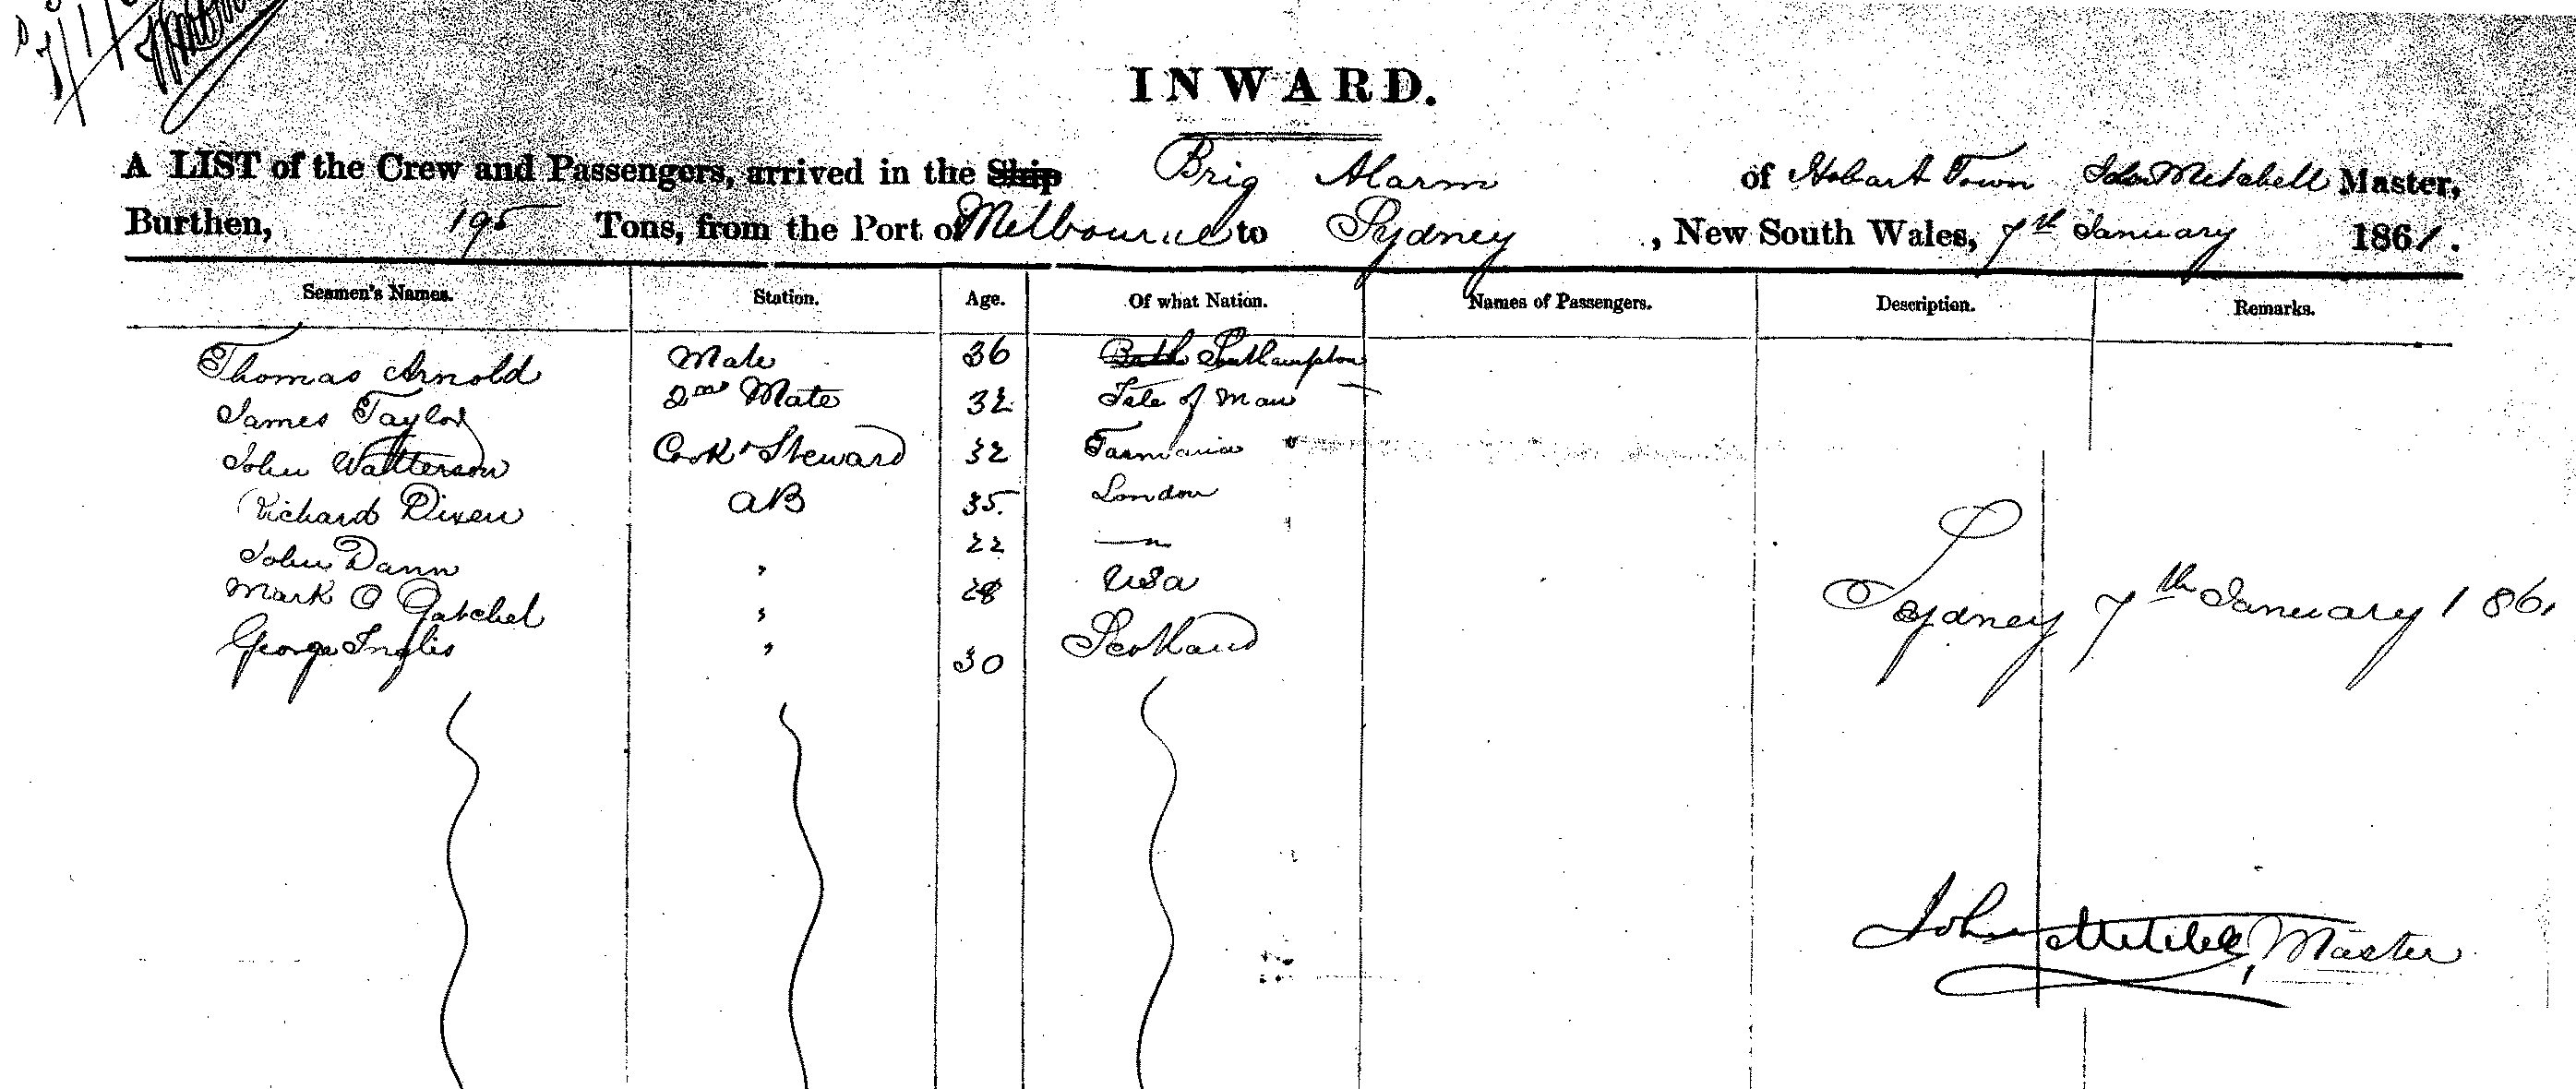 7/1/6
INWARD.
A LIST of the Crew and Passengers, arrived in the Ship Brig Alarm of Hobart Town John Mitchell Master,
Burthen, 195 Tons, from the Port of Melbourne to Sydney, New South Wales, 7th January 1861.
Seamen's Names. Station. Age. Of what Nation. Names of Passengers. Description. Remarks.
Thomas Arnold Mate 36 Southampton
James Taylor 2nd Mate 32 Isle of Man
John Watterson Cook & Steward 32 Tasmania
Richard Dixen AB 35 London
John Dann " 22 —"
Mark O Gatchel " 28 USA
George Inglis " 30 Scotland
Sydney 7th January 1861
John Mitchell, Master